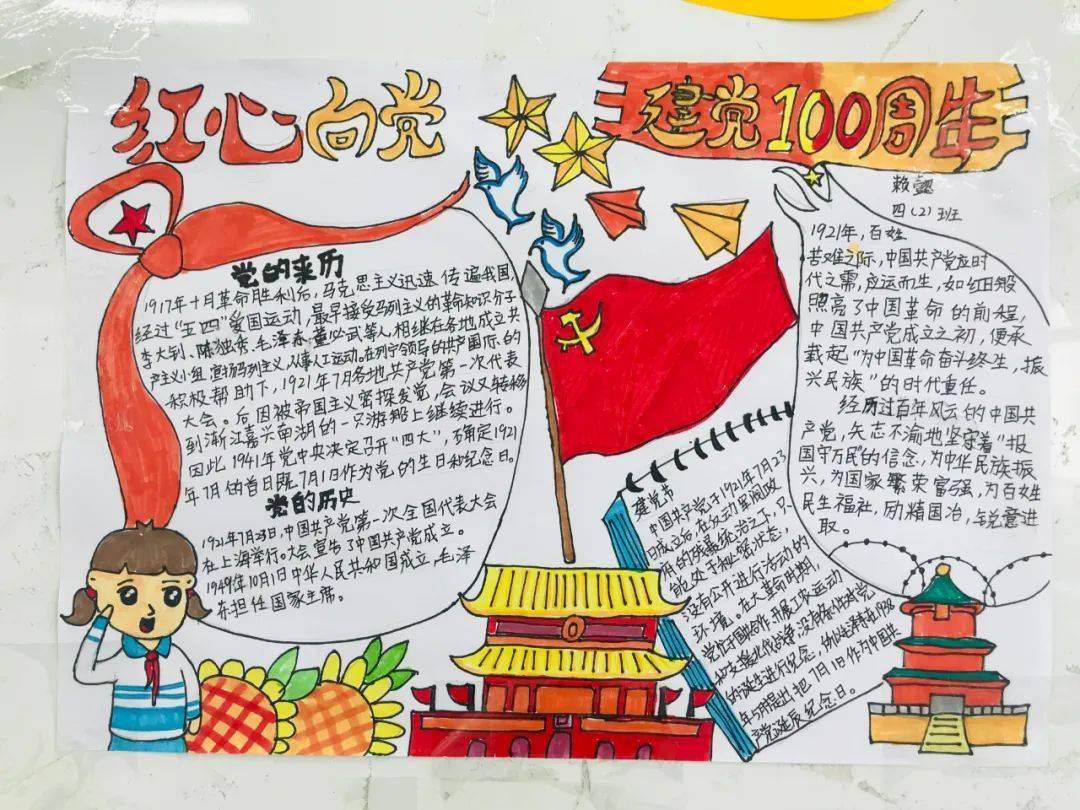 红心向党
建党100周年
党的来历
1917年十月革命胜利后,马克思主义迅速传遍我国,
经过“五四”爱国运动,最早接受马列主义的革命知识分子
李大钊、陈独秀、毛泽东、董必武等人,相继在各地成立共
产主义小组,宣扬马列主义,从事人工运动。在列宁领导的共产国际的
积极帮助下,1921年7月各地共产党第一次代表
大会。后因被帝国主义密探发觉,会议又转移
到浙江嘉兴南湖的一只游船上继续进行。
因此1941年党中央决定召开“四大”,确定1921
年7月的首日既7月1日作为党的生日和纪念日。
党的历史
1921年7月23日,中国共产党第一次全国代表大会
在上海举行。大会宣告了中国共产党成立。
1949年10月1日中华人民共和国成立,毛泽
东担任国家主席。
建党节
中国共产党于1921年7月23
日成立后,在反动军阀政
府的残暴统治之下,只
能处于秘密状态,
没有公开进行活动的
环境。在大革命时期,
党忙于国共合作、开展工农运动
和支援北伐战争,没有条件对党
的诞生进行纪念,所以毛泽东在1938
年5月提出把7月1日作为中国共
产党诞辰纪念日。
赖懿
四(2)班
1921年,百姓
苦难之际,中国共产党应时
代之需,应运而生,如红日般
照亮了中国革命的前程,
中国共产党成立之初,便承
载起“为中国革命奋斗终生,振
兴民族”的时代重任。
经历过百年风云的中国共
产党,矢志不渝地坚守着“报
国守万民”的信念,为中华民族振
兴,为国家繁荣富强,为百姓
民生福祉,励精国冶,锐意进
取。